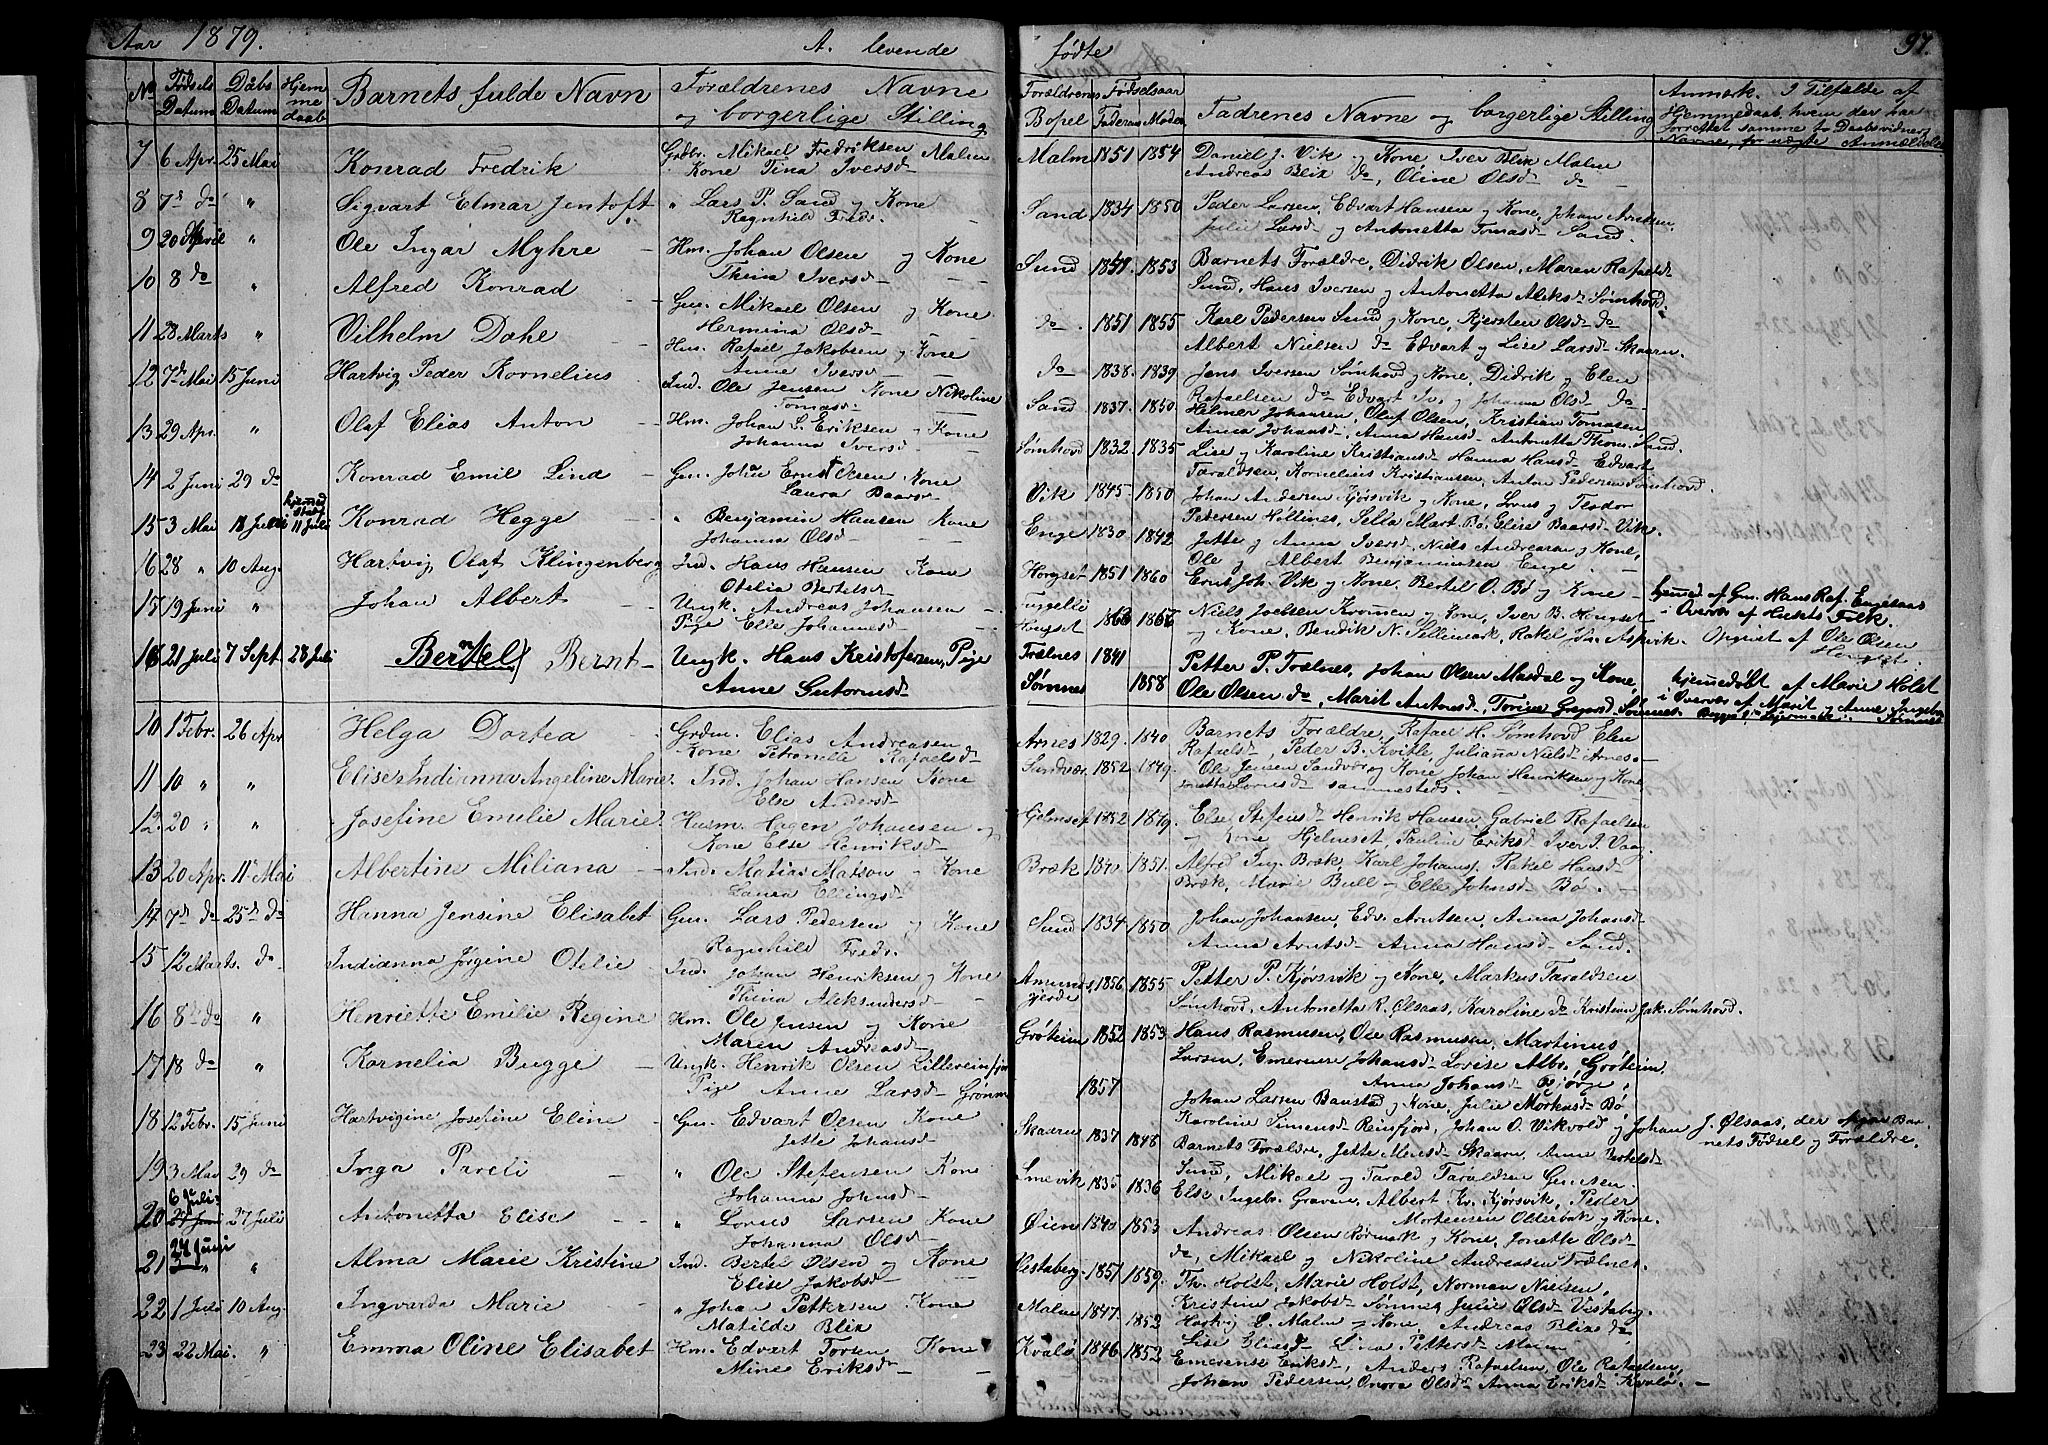 Aar 1879. A. levende fødte 97.
No Fødsels Datum Daabs Datum Hjemmedaab Barnets fulde Navn Forældrenes Navne og borgerlige Stilling Forældrenes Bopel Fødselsaar Faderens Moderens Fadrenes Navne og borgerlige Stilling Anmærk. I Tilfælde af Hjemmedaab, hvem der har forrettet samme
7 6 Apr. 25 Mai Konrad Fredrik Grdbr. Mikael Fredriksen Malm Kone Tina Iversd. Malm 1851 1854 Daniel J. Vik og Kone Iver Blix Malm
Andreas Blix do, Oline Olsd do
8 7de do " Sigvart Elmar Jentoft " Lars P. Sand og Kone Ragnhild Fredr. Sand 1834 1850 Peder Larsen, Edvart Hansen og Kone, Johan Arntsen,
Julie Larsd og Antonetta Tomasd Sand.
9 20 April " Ole Ingar Myhre Hm. Johan Olsen og Kone Thina Iversd Sund 1853 Barnets Forældre, Didrik Olsen, Maren Rafaelsd
Sund, Hans Iversen og Antonetta Aleksd Sømhovd.
10 8 do " Alfred Konrad Gm. Mikael Olsen og Kone Hermina Olsd do 1851 1855 Karl Pedersen Sund og Kone, Kjersten Olsd do
Albert Nielsen do Edvart og Lise Larsd Skaarn.
11 28 Marts " Vilhelm Dahe Hm. Rafael Jakobsen og Kone Anne Iversd do 1838. 1839 Jens Iversen Sømhovd og Kone, Didrik og Elen
Rafaelsen do Edvart Iv. og Johanna Olsd do
12 7de Mai 15 Juni Hartvig Peder Kornelius Ind. Ole Jensen Kone Nikoline Tomasd Sand 1837. 1850. Helmer Johansen, Oluf Olsen, Kristian Tomasen
Anna Johansd, Anna Hansd Antonetta Thom. Sand.
13 29 Apr. " Olaf Elias Anton Hm. Johan L. Eriksen Kone Johanna Iversd Sømhovd 1832 1835 Lise og Karoline Kristiansd Hanna Hansd Edvart
Taraldsen, Kornelius Kristiansen, Anton Pedersen Sømhovd.
14 2 Juni 29 do Konrad Emil Lind Gm. Johan Ernst Olsen Kone Laura Baarsd Vik 1845. 1850 Johan Andersen Kjørsvik og Kone, Lorns og Teodor
Pedersen Hillines, Sella Mart. Bø, Elise Baarsd Vik.
15 3 Mai 18 Juli hjemmed 11 Juli Konrad Hegge " Benjamin Hansen Kone Johanna Olsd Enge 1830. 1842 Jette og Anna Iversd Niels Andreasen og Kone,
Ole og Albert Benjaminsen Enge.
16 28 " 10 Aug. Hartvig Olaf Klingenberg Ind. Hans Hansen Kone Otelia Bertelsd Horgset 1851 1860 Ernst Joh. Vik og Kone. Bertel O. Bø og Kone
17 19 Juni " Johan Albert Ungk. Andreas Johansen Pige Elle Johannesd Horgset Niels Joelsen Kromoen og Kone, Iver B. Hongset
og Kone, Bendik N. Sellemark, Rakel Joh. Aspvik. hjemmed. af Gm. Hans Raf. Engesaas i Overvær af Husets Folk. Opgivet af Ole Olsen
18 21 Juli 7 Sept. 28 Juli Bertel Bernt Ungk. Hans Kristofersen, Pige Anne Gutormsd Trælnes Sømnes 1841 1858 Petter P. Trælnes, Johan Olsen Mosdal og Kone,
Ole Olsen do, Marit Antonsd, Torine Gregersd Sømnes hjemmedøbt af Marie Holst i Overvær af Marit og Anne Ingebr.
10 1 Febr. 26 Apr. Helga Dortea Grdm. Elias Andreasen Kone Petronelle Rafaelsd Arnes 1829. 1840 Barnets Forældre, Rafael H. Sømhovd Elen
Rafaelsd, Peder B. Kvitle, Juliana Nielsd Arnes
11 10 " " Elise Indianna Angeline Marie. Ind. Johan Hansen Kone Else Andersd Sandvær 1852 1849. Ole Jensen Sandvær og Kone Johan Henriksen og Kone
sammesteds.
12. 20 " " Josefine Emilie Marie Husm. Hagen Johansen og Kone Else Henriksd Hjelmset 1852 1849. Else Stefensd Henrik Hansen, Gabriel Rafaelsen
og Kone Hjelmset, Pauline Eriksd Iver I. Vaag.
13 20 Apr. 11te Mai Albertine Miliana Ind. Matias Matson Kone Laura Ellingsd Bræk 1840 1851. Alfred Ing. Bræk, Karl Johans, Rakel Hansd
Bræk, Marie Bull og Elle Johnsd Bø.
14 7de do 25de do Hanna Jensine Elisabet Gm. Lars Pedersen og Kone Ragnhild Fredr. Sund 1834 1850 Johan Johansen, Edv. Arntsen, Anna Johansd
Anna Arntsd Anna Hansd Sand.
15 12 Marts. do Indianna Jørgine Otelie Ind. Johan Henriksen og Kone Thina Aleksandersd Amundsgjerde 1856 1855 Petter P. Kjørsvik og Kone, Markus Taraldsen
Sømhovd, Antonetta R. Ølsaas, Karoline do Kristian Jak. Sømhovd.
16 8de do " Henriette Emilie Regine Hm. Ole Jensen og Kone Maren Andreasd Grøtheim 1852 1853 Hans Rasmusen, Ole Rasmusen, Martinus
Larsen, Emerense Johansd Lovise Albr. Grøtheim,
17 18 do " Kornelia Bugge Ungk. Henrik Olsen Pige Anne Larsd 1857 Anna Johansd Bjørge,
Johan Larsen Banstad og Kone, Julie Bø,
18 12 Febr. 15 Juni Hartvigine Josefine Eline Gm. Edvart Olsen Kone Jette Johansd Skaarn 1837 1848 Karoline Simensd Reinfjord, Johan O. Vikvold og Johan J. Ølsaas, der Barnets Fødsel og Forældre.
Barnets Forældre, Jette Skaarn, Anne Bertelsd
19 3 Mai 29 do Inga Pareli " Ole Stefensen Kone Johanna Johnsd 1835 1836 Sund, Mikael og Tarald Taraldsen
Else Ingebr. Graven, Albert Kr. Kjørsvik, Peder
20 6 Juli 27 Juli Antonetta Elise " Lorns Larsen Kone Johanna Olsd Øien 1840 1853 Mortensen Olderbak og Kone.
Andreas Olsen Rørmark og Kone, Jonette Olsd
21 24 Juni " Alma Marie Kristine Ind. Berte Olsen og Kone Elise Jakobsd Vestaberg 1851 1859. do, Mikael og Nikoline Andreasen Trælnes.
Th. Holst, Marie Holst, Norman Nielsen,
22 1 Juli 10 Aug. Ingvarda Marie " Johan Pettersen Kone Matilde Blix Malm 1847. 1852 Kristine Jakobsd Sømnes Julie Olsd Vestabrg
Hartvig L. Malm og Kone, Andreas Blix do
23 22 Mai. " Emma Oline Elisabet Hm. Edvart Torsen Kone Mine Eriksd Kvalø 1846 1852 Lise Eliasd Lina Pettersd Malm
Emerense Eriksd, Anders Rafaelsen, Ole Rafaelsen,
Johan Pedersen, Onora Olsd Anna Eriksd Kvalø.